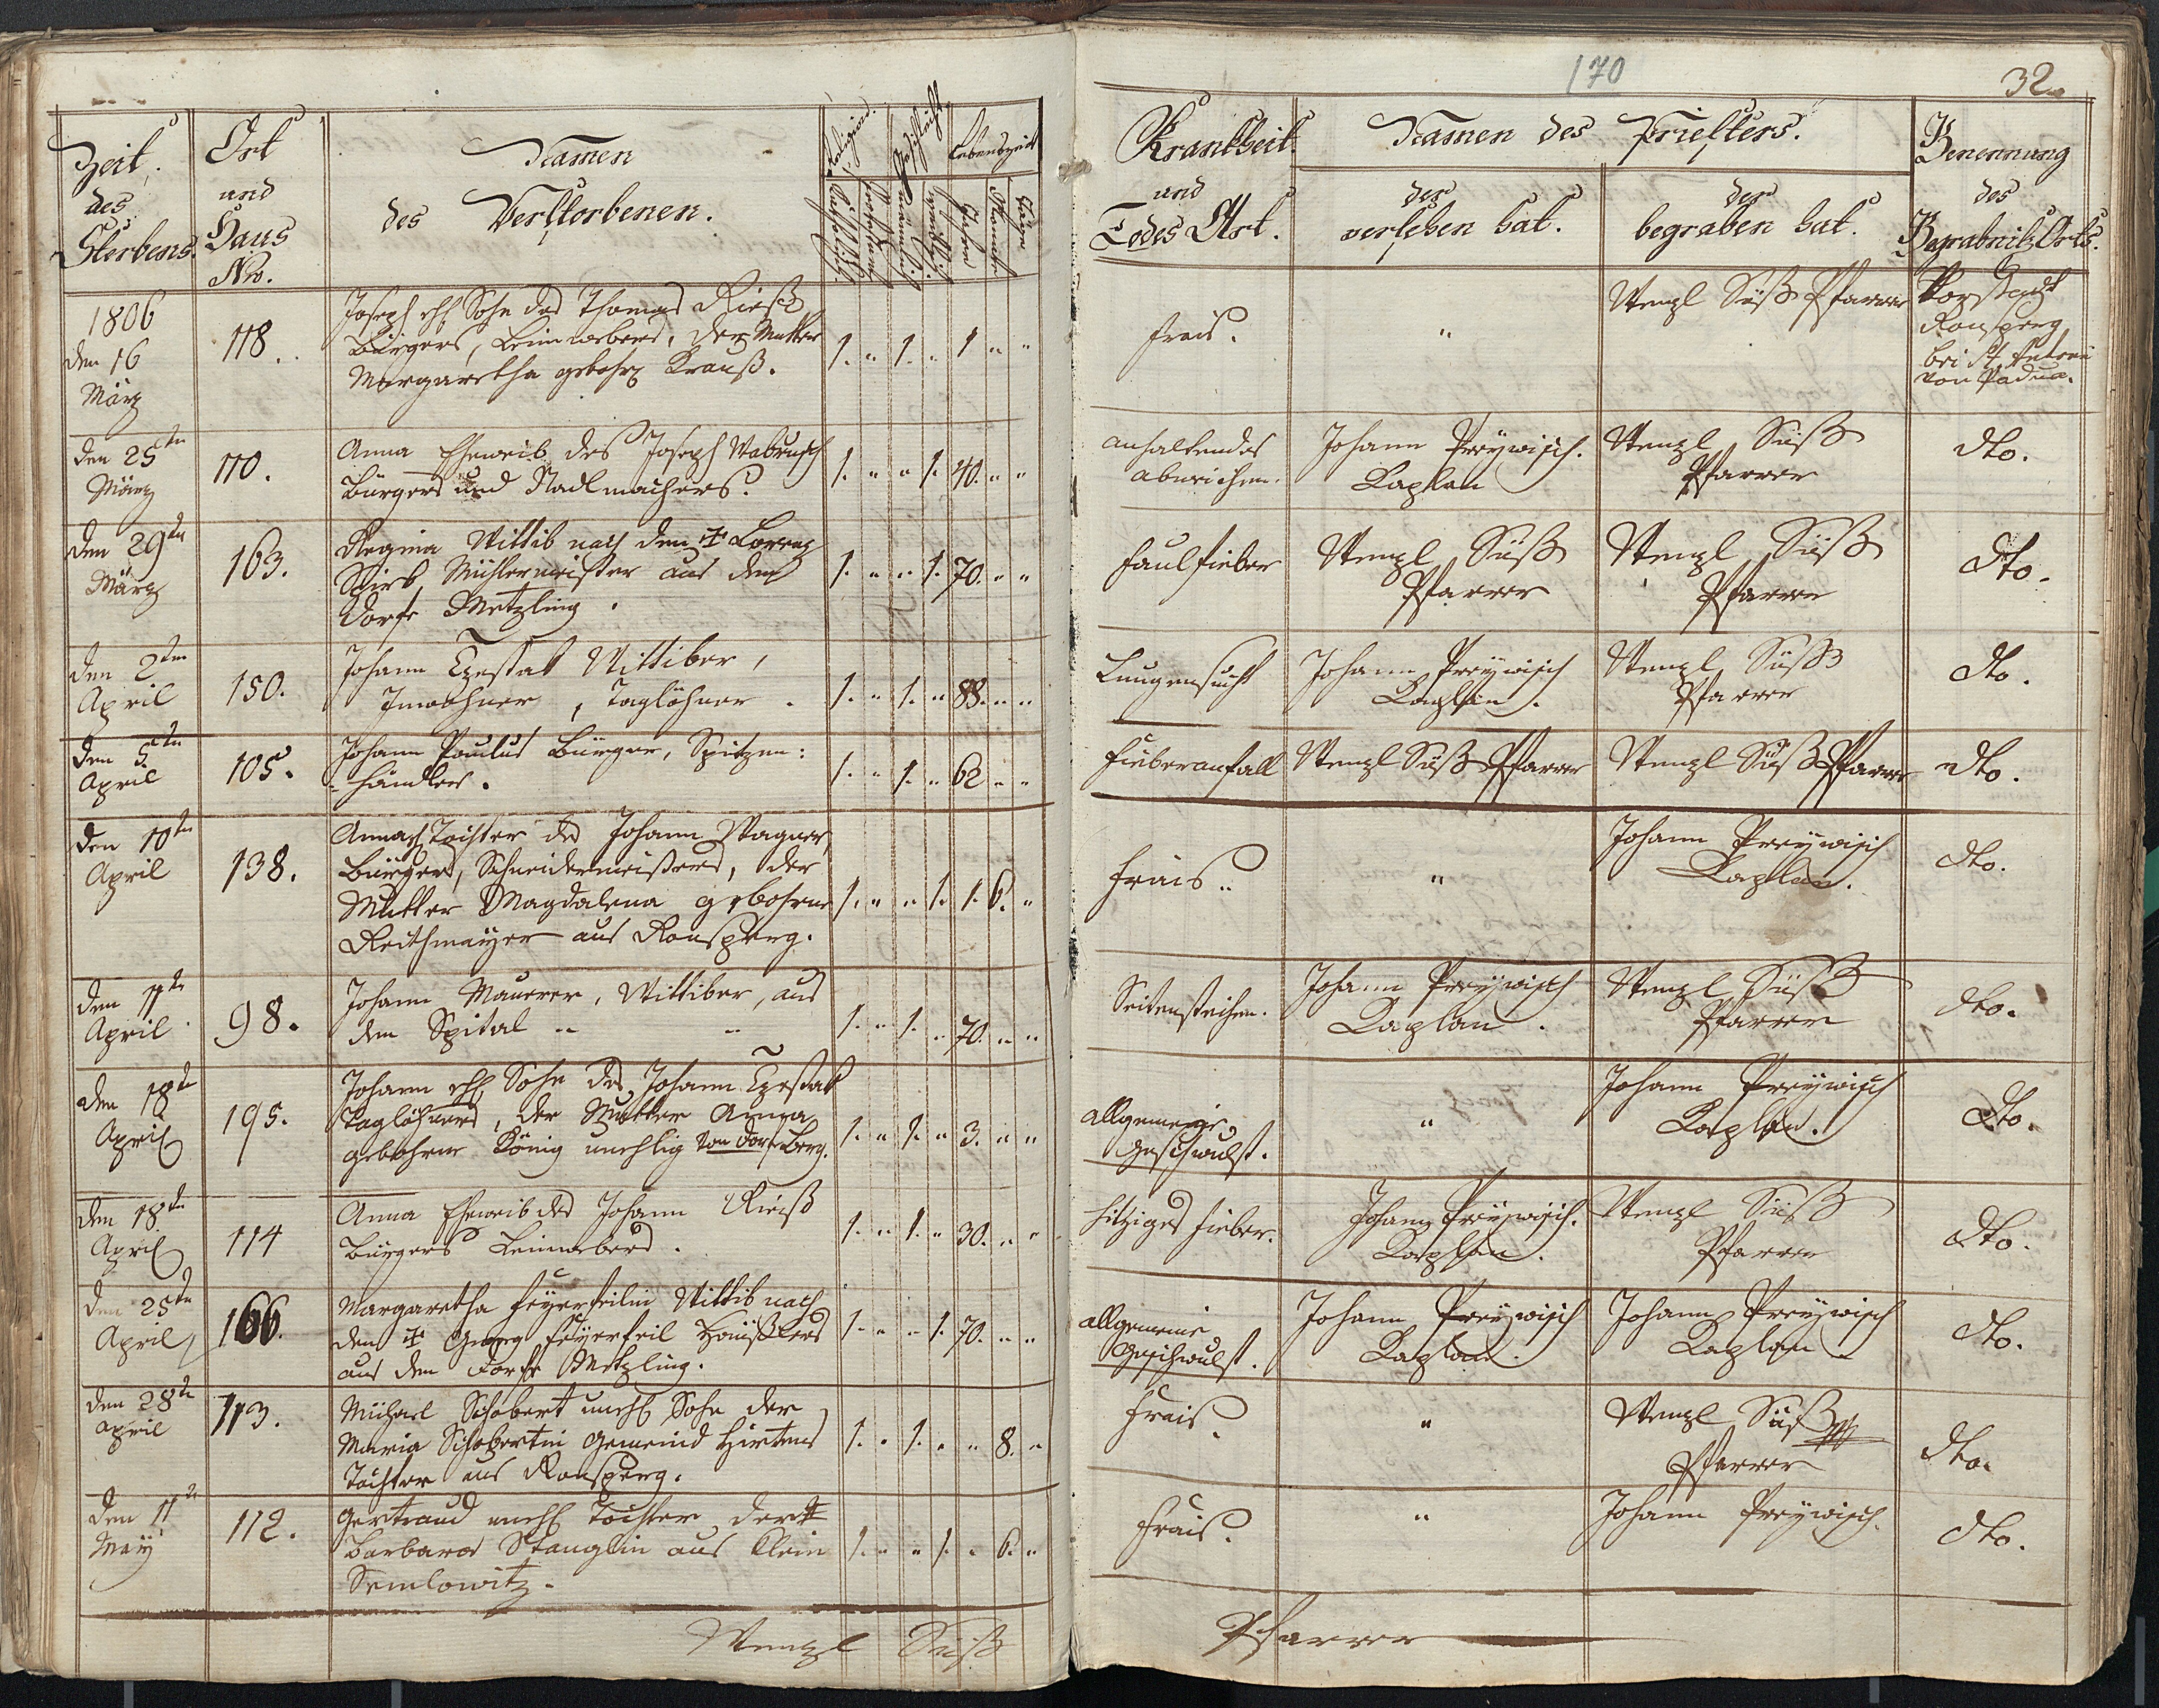 170
32
Zeit
des
Sterbens.
Ort
und
Haus
Nro.
Namen
des Verstorbenen.
Religion.
Geschlecht
Lebenszeit
Katholisch
Protestant
männlich
weiblich
Jahre
Monathe
Tage
Krankheit
und
Todes Art.
Namen des Priesters.
der
versehen hat.
der
begraben hat.
Benennung
des
Begräbnitz Orts.
1806
den 16
März
118.
Joseph ehl Sohn des Thomas Riess
Bürgers, Leinwebers, der Mutter
Margaretha gebohrn Krauß.
1. " 1. " 1 " "
Frais.
"
Wenzl Süß Pfarrer
Vorstadt
Ronsperg
bei St Antoni
von Padua.
den 25ten
März
110.
Anna Eheweib des Joseph
Bürgers und Nadlmachers.
1. " " 1. 40. " "
anhaltendes
abweichen.
Johann Preywisch.
Kaplan
Wenzl Süß
Pfarrer
dto.
den 29ten
März
163.
Regina Wittib nach dem † Lorenz
Müllermeister aus dem
Dorfe Metzling.
1. " " 1. 70. " "
Faulfieber
Wenzl Süß
Pfarrer
Wenzl Süß
Pfarrer
dto.
den 2ten
April
150.
Johann Tzestak Wittiber,
Inwohner, Taglöhner.
1. " 1. " 88. " "
Lungensucht
Johann Preywisch
Kaplan.
Wenzl Süß
Pfarrer
dto.
den 5ten
April
105.
Johann Paulus Bürger, Spitzen:
händler.
1. " 1. " 62 " "
Fieberanfall
Wenzl Süß Pfarrer
Wenzl Süß Pfarrer
dto.
den 10ten
April
138.
Anna Tochter des Johann Wagner,
Bürgers, Schneidermeisters, der
Mutter Magdalena gebohrne
Reithmayer aus Ronsperg.
1. " " 1. 1. 6. "
Frais.
"
Johann Preywisch
Kaplan.
dto.
den 11ten
April
98.
Johann Mauerer, Wittiber, aus
dem Spital
1. " 1. " 70. " "
Seitenstechen.
Johann Preywisch
Kaplan.
Wenzl Süß
Pfarrer
dto.
den 18ten
April
195.
Johann ehl Sohn des Johann Tzestak
Taglöhners, der Mutter Anna
gebohrne König unehlig von Dorf Berg.
1. " 1. " 3. " "
allgemeine
Geschwulst.
"
Johann Preywisch
Kaplan.
dto.
den 18ten
April
114
Anna Eheweib des Johann Riess
Bürgers Leinwebers.
1. " 1. " 30. " "
hitziges Fieber.
Johann Preywisch.
Kaplan.
Wenzl Süß
Pfarrer
dto.
den 25ten
April
166.
Margaretha Feyerfeilin Wittib nach
dem † Georg Feyerfeil Häußlers
aus dem Dorfe Metzling.
1. " " 1. 70. " "
allgemeine
Geschwulst.
Johann Preywisch
Kaplan.
Johann Preywisch
Kaplan
dto.
den 28ten
April
113.
Michael Schobert unehl Sohn der
Maria Schobertin Gemeind Hirtens
Tochter aus Ronsperg.
1. " 1. " " 8. "
Frais.
"
Wenzl Süß
Pfarrer
dto.
den 11te
May
112.
Gertraud unehl Tochter der
Barbara Stanglin aus Klein
Semlowitz.
1. " " 1. " 6. "
Frais.
"
Johann Preywisch.
dto.
Wenzl Süß
Pfarrer